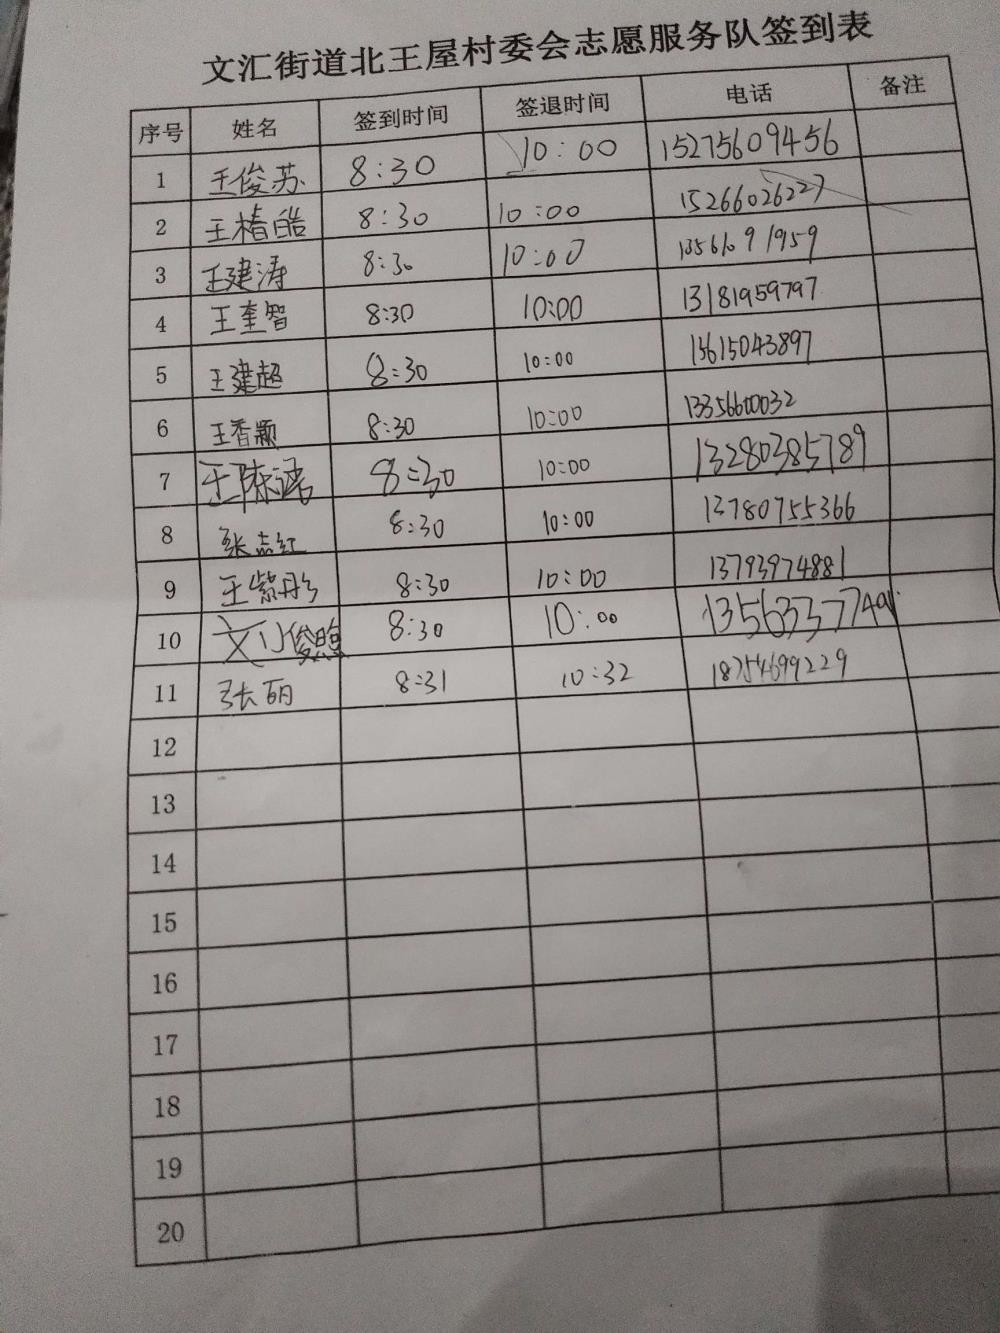 文汇街道北王屋村委会志愿服务队签到表
序号 姓名 签到时间 签退时间 电话 备注
1 王俊苏 8:30 10:00 15275609456
2 王椿皓 8:30 10:00 15266026227
3 王建涛 8:30 10:00 13561091959
4 王奎智 8:30 10:00 13181959797
5 王建超 8:30 10:00 15615043897
6 王香颖 8:30 10:00 13356600032
7 王陈诺 8:30 10:00 13280385789
8 张志红 8:30 10:00 13780755366
9 王紫彤 8:30 10:00 13793974881
10 刘俊煦 8:30 10:00
11 张丽 8:31 10:32 18754699229
12
13
14
15
16
17
18
19
20